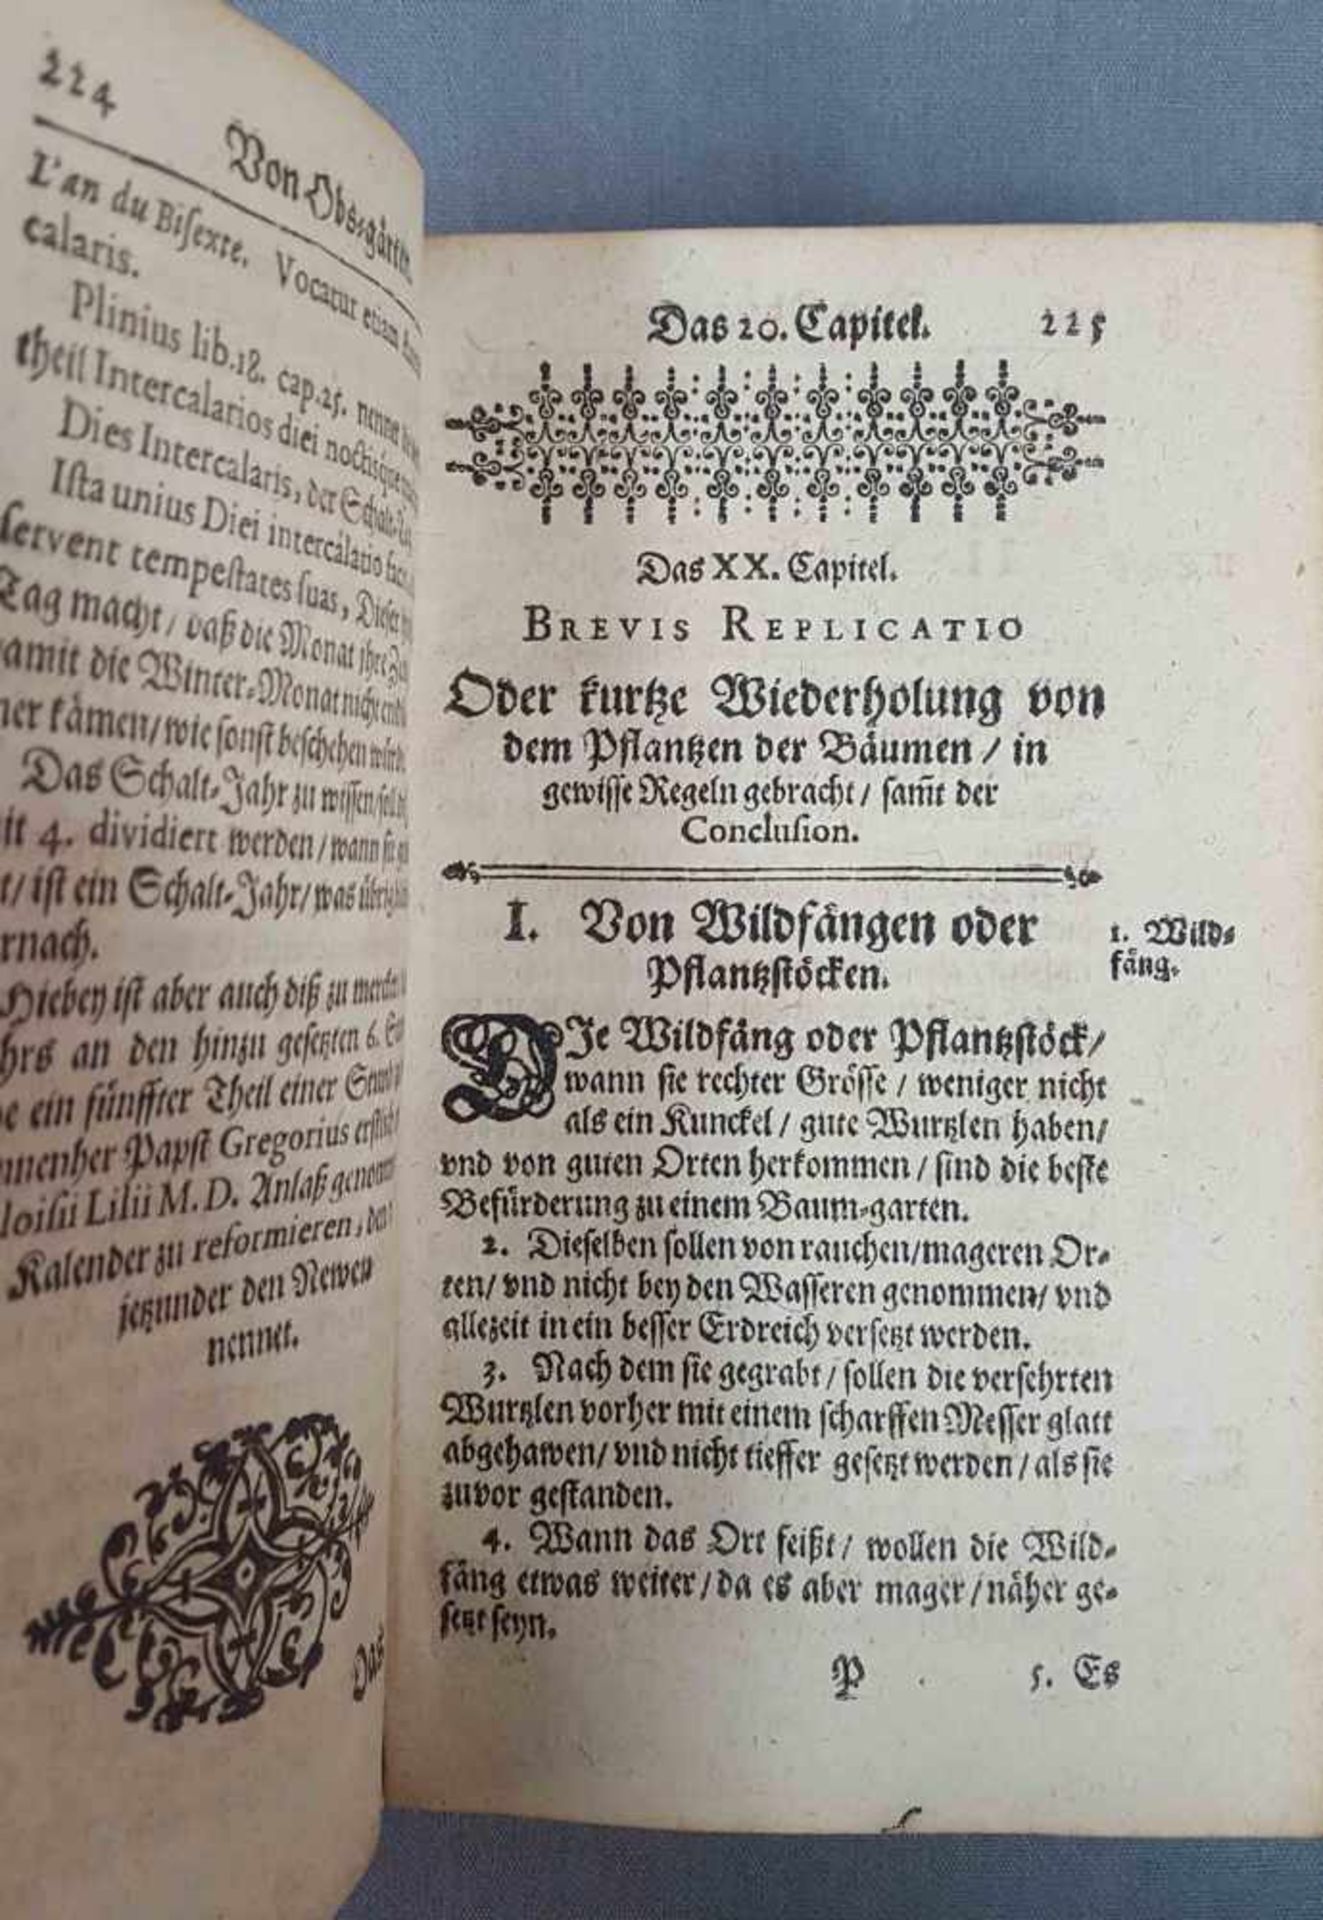 224
Von Obs-gärten.
L'an du Biſexte. Vocatur etiam
calaris.
Plinius lib.18. cap.25. nennet
theil Intercalarios diei noctisque
Dies Intercalaris, der Schalt-
Iſta unius Diei intercalatio
ſervent tempeſtates ſuas, Dieſer
Tag macht / daß die Monat ihre
damit die Winter-Monat nicht
kämen / wie ſonſt beſchehen
Das Schalt-Jahr zu wiſſen /
mit 4. dividiert werden / wann
/ iſt ein Schalt-Jahr / was
Hiebey iſt aber auch diß zu
an den hinzu geſetzten 6.
ein fünffter Theil einer
Papſt Gregorius
Lilii M. D. Anlaß
Kalender zu reformieren,
jetzunder den Newen
nennet.
Das
Das 20. Capitel. 225
Das XX. Capitel.
BREVIS REPLICATIO
Oder kurtze Wiederholung von
dem Pflantzen der Bäumen / in
gewiſſe Regeln gebracht / ſam̃t der
Concluſion.
I. Von Wildfängen oder
Pflantzſtöcken.
1. Wild-
fäng.
DIe Wildfäng oder Pflantzſtöck /
wann ſie rechter Gröſſe / weniger nicht
als ein Kunckel / gute Wurtzlen haben /
vnd von guten Orten herkommen / ſind die beſte
Befürderung zu einem Baum-garten.
2. Dieſelben ſollen von rauchen / mageren Or-
ten / vnd nicht bey den Waſſeren genommen / vnd
allezeit in ein beſſer Erdreich verſetzt werden.
3. Nach dem ſie gegrabt / ſollen die verſehrten
Wurtzlen vorher mit einem ſcharffen Meſſer glatt
abgehawen / vnd nicht tieffer geſetzt werden / als ſie
zuvor geſtanden.
4. Wann das Ort feißt / wollen die Wild-
fäng etwas weiter / da es aber mager / näher ge-
ſetzt ſeyn.
P 5. Es